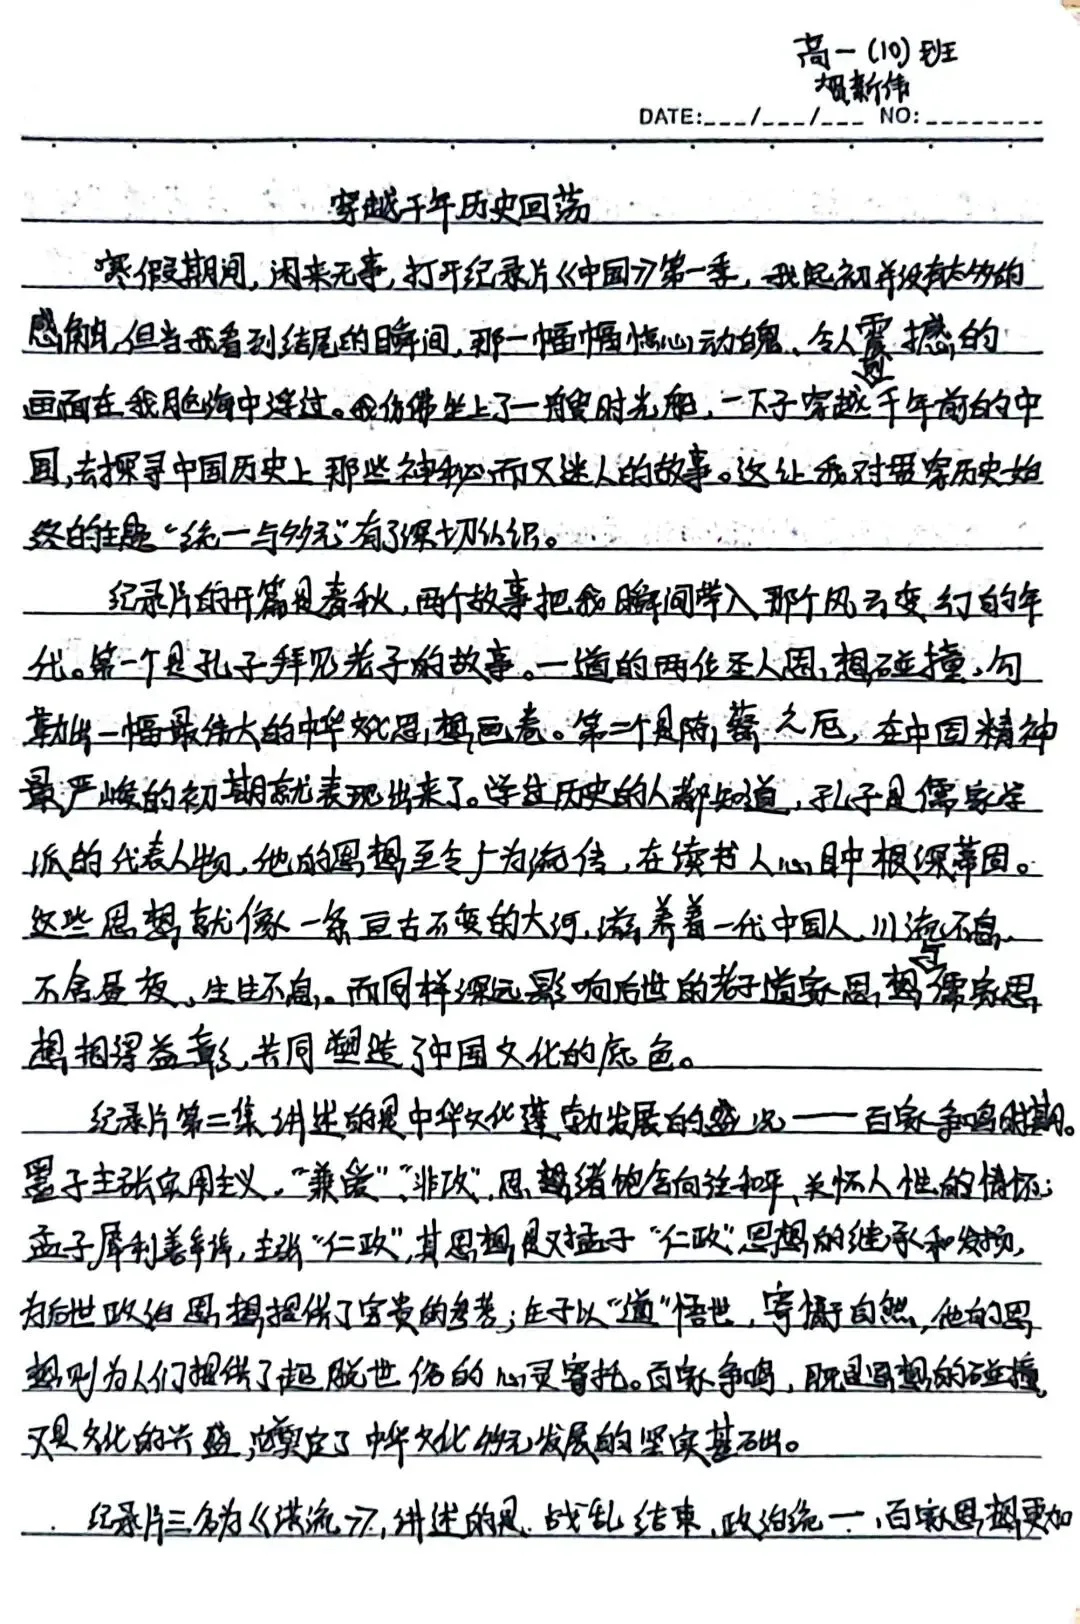 高一(10)班
贺新伟
DATE:___/___/___ NO:________
穿越千年历史回荡
寒假期间,闲来无事,打开纪录片《中国》第一季,我起初并没有太多的
感触,但当我看到结尾的瞬间,那一幅幅惊心动魄、令人震撼的
画面在我脑海中浮过。我仿佛坐上了一艘时光船,一下子穿越到千年前的中
国,去探寻中国历史上那些神秘而又迷人的故事。这让我对贯穿历史始
终的主题“统一与多元”有了深切认识。
纪录片的开篇是春秋,两个故事把我瞬间带入那个风云变幻的年
代。第一个是孔子拜见老子的故事。一道的两位圣人思想碰撞,勾
勒出一幅最伟大的中华文化思想画卷。第二个是陈蔡之厄,在中国精神
最严峻的初期就表现出来了。学过历史的人都知道,孔子是儒家学
派的代表人物,他的思想至今广为流传,在读书人心目中根深蒂固。
这些思想就像一条亘古不变的大河,滋养着一代中国人,川流不息、
不舍昼夜、生生不息。而同样深远影响后世的老子道家思想与儒家思
想相得益彰,共同塑造了中国文化的底色。
纪录片第二集讲述的是中华文化蓬勃发展的盛况——百家争鸣时期。
墨子主张实用主义,“兼爱”“非攻”,思想绪饱含向往和平、关怀人性的情怀;
孟子犀利善辩,主张“仁政”,其思想是对孟子“仁政”思想的继承和发扬,
为后世政治思想提供了宝贵的参考;庄子以“道”悟世,寄情于自然,他的思
想则为人们提供了超脱世俗的心灵寄托。百家争鸣,既是思想的碰撞,
又是文化的兴盛,它奠定了中华文化多元发展的坚实基础。
纪录片三名为《洪流》,讲述的是战乱结束,政治统一,百家思想更加